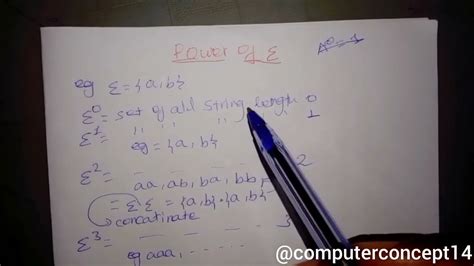 Power of Σ
A⁰ = 1
eg Σ = {a, b}
Σ⁰ = set of all string length 0
Σ¹ = " " " " " 1
eg = {a, b}
Σ² = — — — — 2
aa, ab, ba, bb,
= Σ Σ = {a, b} . {a, b}
concatinate
Σ³ = — — — — 3
eg aaa, ....
@computerconcept14